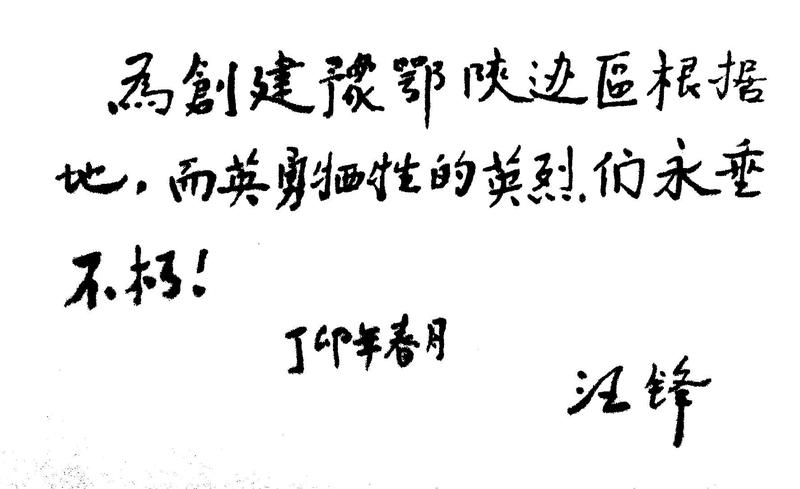 為創建豫鄂陝边區根据
地，而英勇牺牲的英烈们永垂
不朽！
丁卯年春月
汪锋